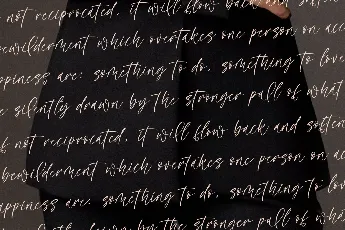 not reciprocated, it will flow back and soften
bewilderment which overtakes one person on acc
ppiness are: something to do, something to lov
e silently drawn by the stronger pull of what
f not reciprocated, it will flow back and soften
bewilderment which overtakes one person on ac
appiness are: something to do, something to lov
silently drawn by the stronger pull of what